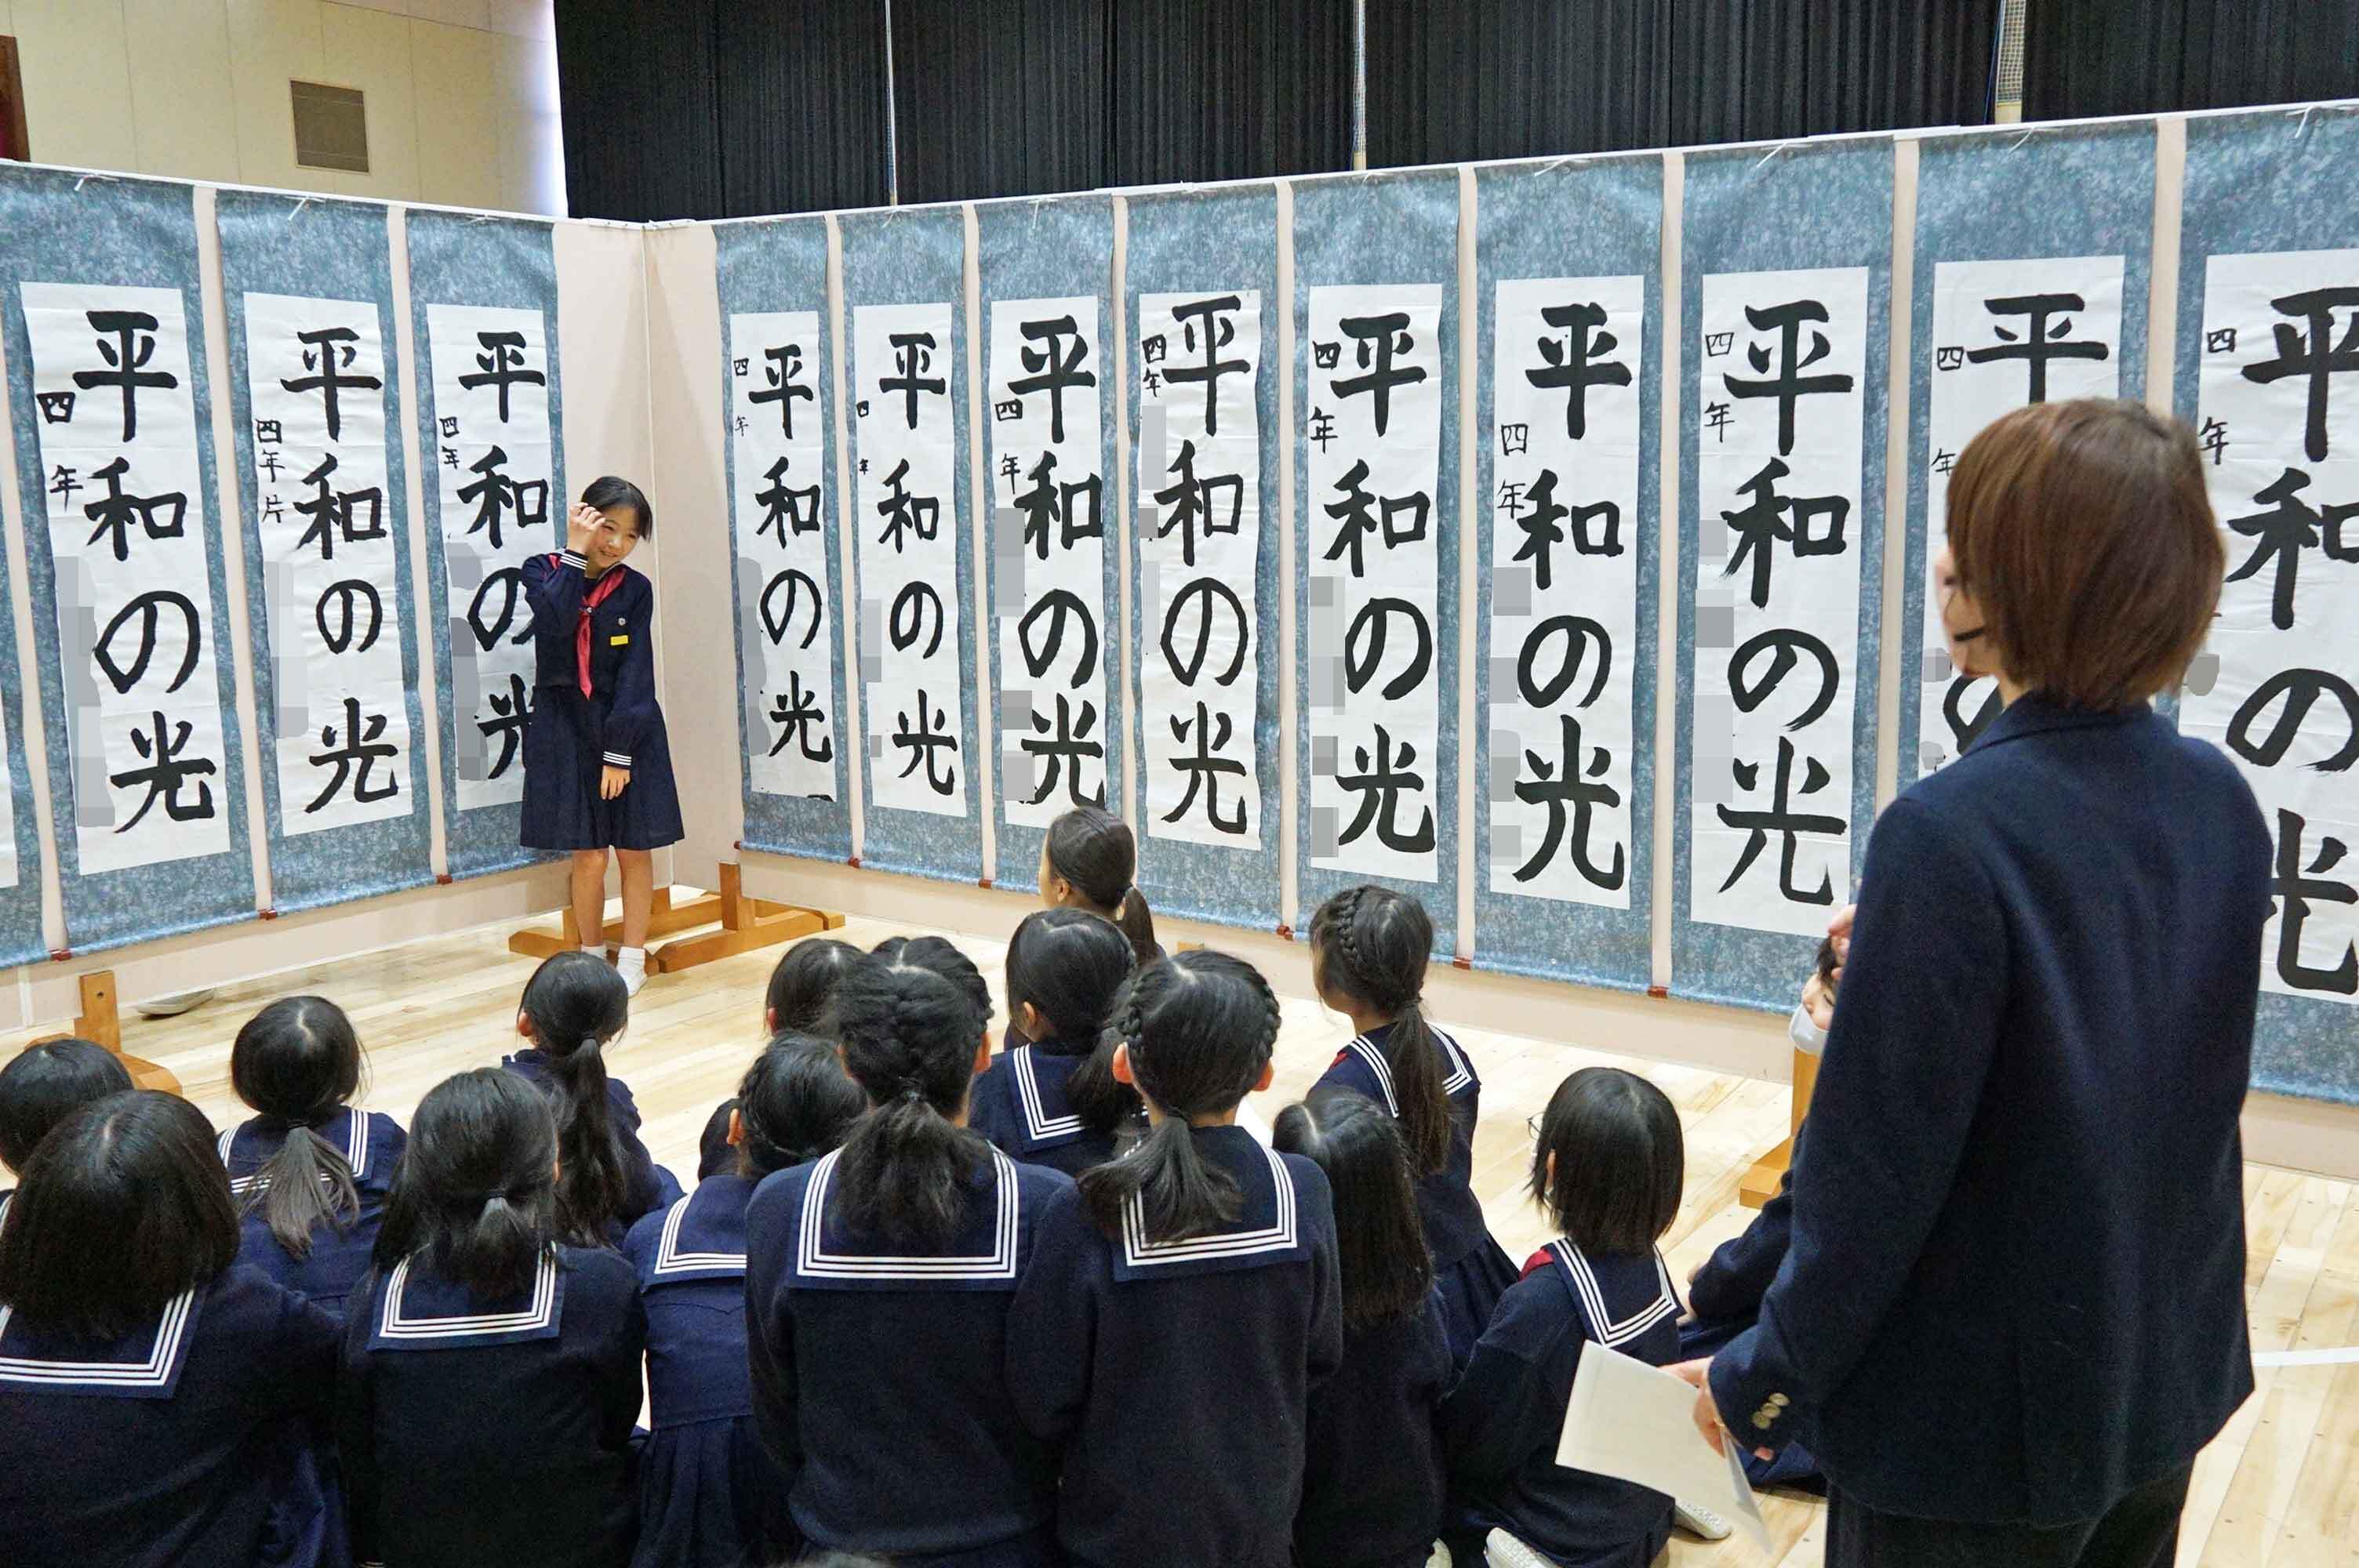 平和の光
四年
平和の光
四年片
平和の光
四年
平和の光
四年
平和の光
四年
平和の光
四年
平和の光
四年
平和の光
四年
平和の光
四年
平和の光
四年
平
四年
平和の光
四年